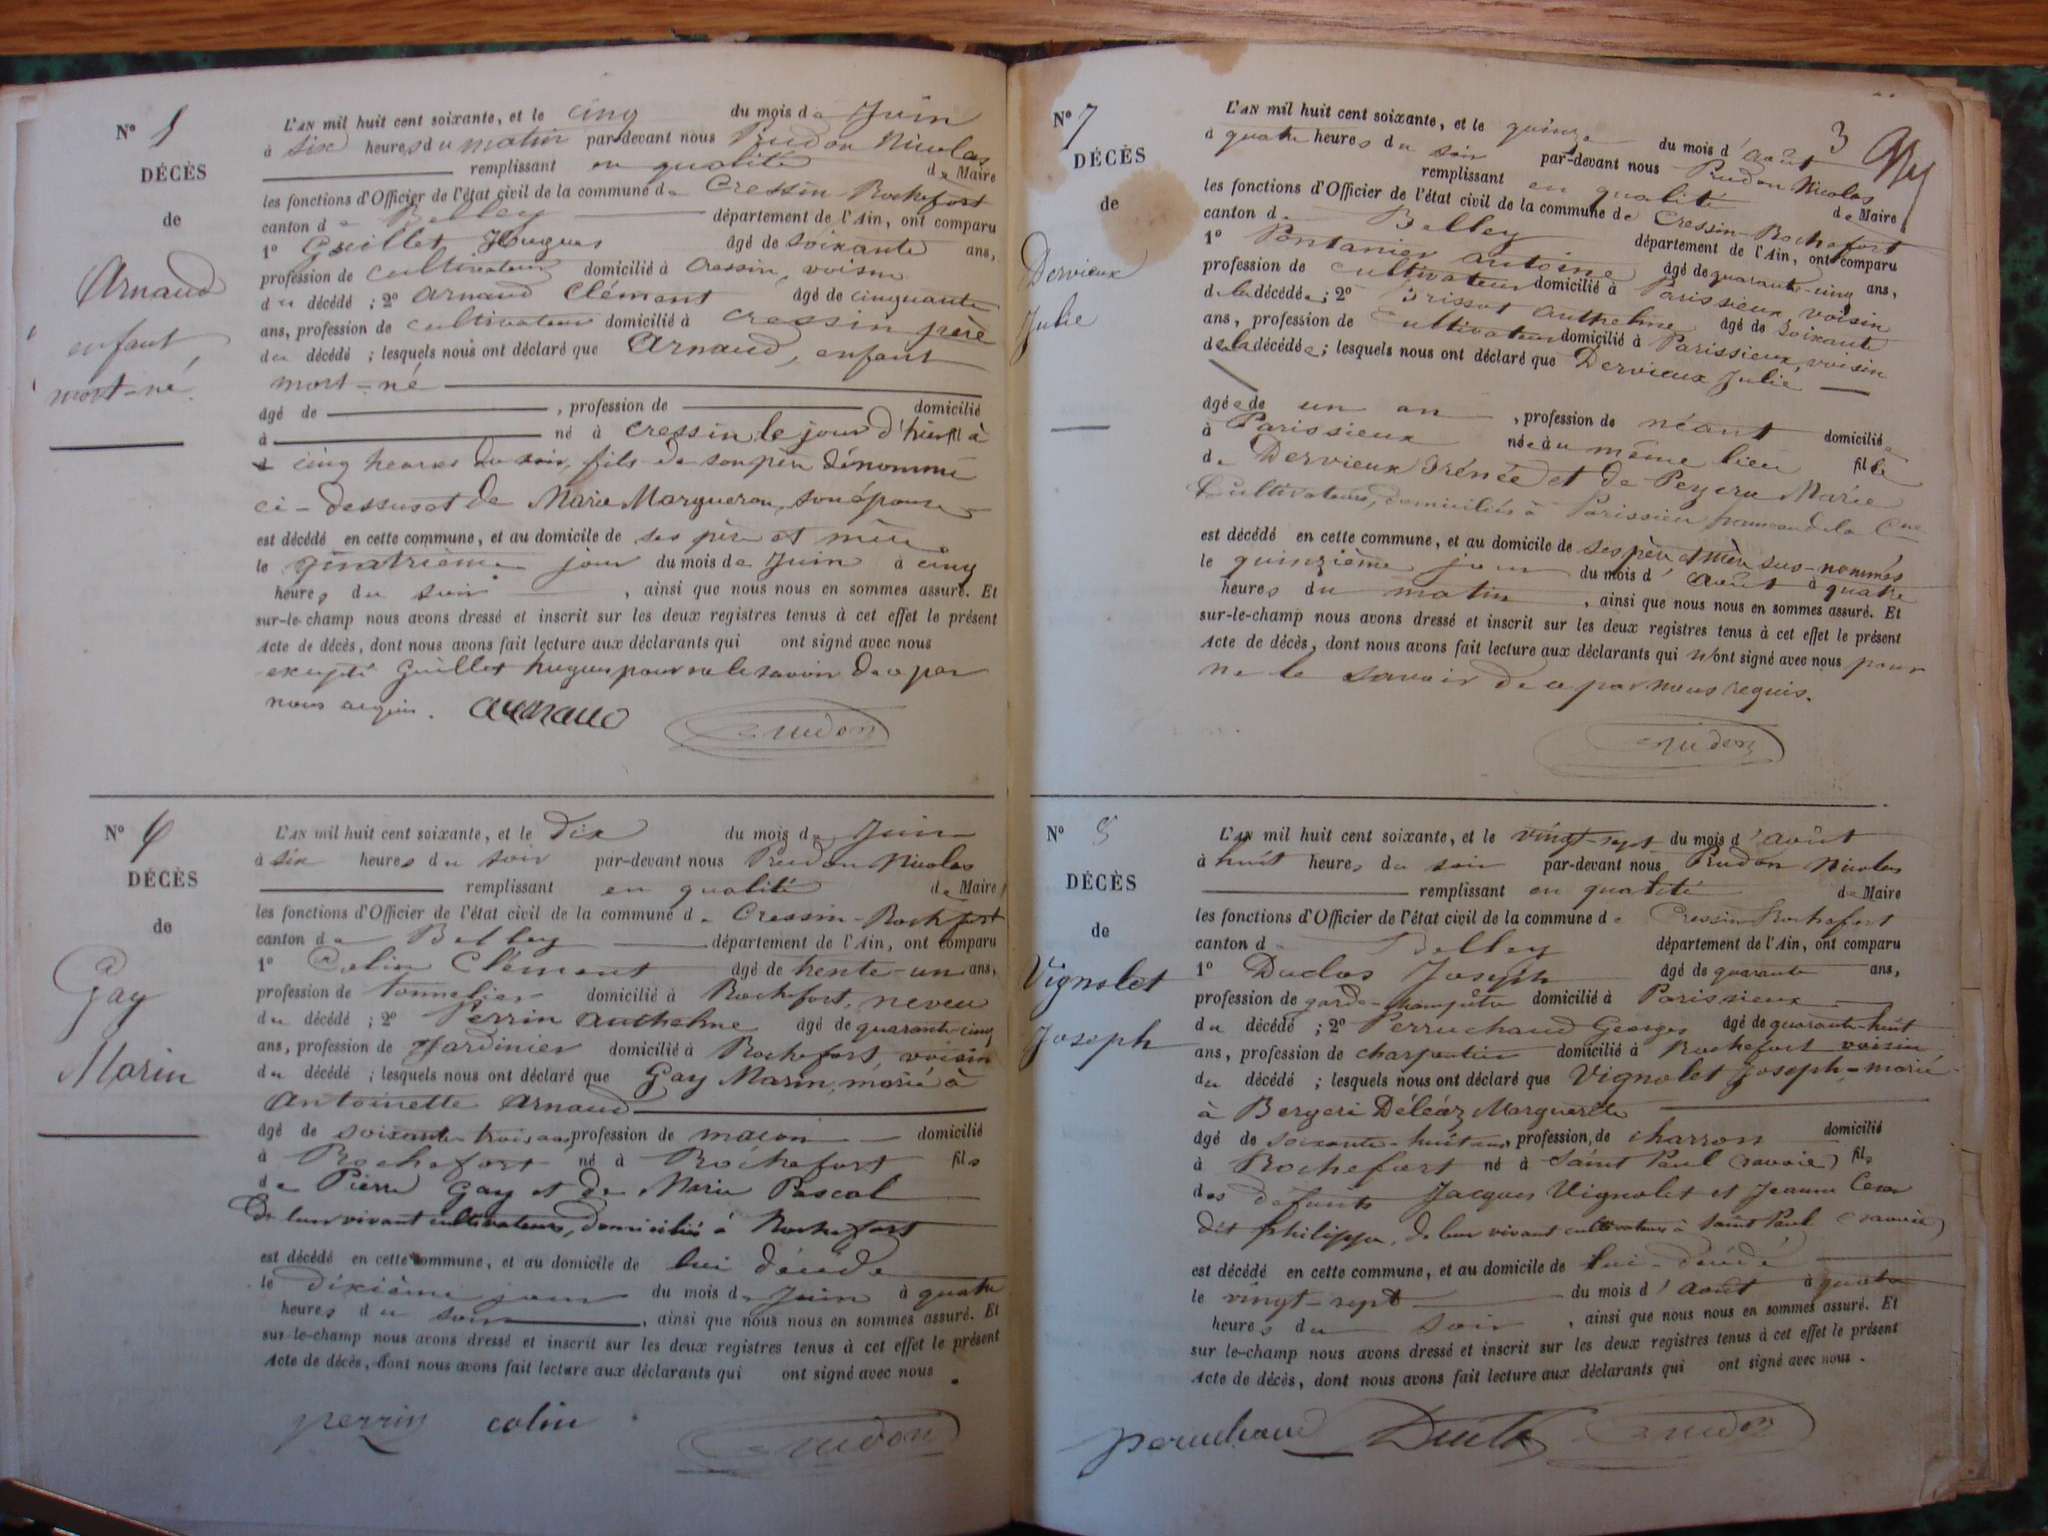 N° 5
DÉCÈS
de
Arnaud
enfant
mort-né.
L'AN mil huit cent soixante, et le cinq du mois de Juin
à six heures du matin par-devant nous Prudon Nicolas
remplissant en qualité de Maire
les fonctions d'Officier de l'état civil de la commune de Cressin-Rochefort
canton de Belley département de l'Ain, ont comparu
1° Guillet Hugues âgé de soixante ans,
profession de cultivateur domicilié à Cressin, voisin
du décédé ; 2° Arnaud Clément âgé de cinquante
ans, profession de cultivateur domicilié à Cressin père
du décédé ; lesquels nous ont déclaré que Arnaud, enfant
mort-né
âgé de , profession de domicilié
à né à Cressin le jour d'hier fil à
cinq heures du soir, fils de son père dénommé
ci-dessus et de Marie Margueron, son épouse
est décédé en cette commune, et au domicile de ses père et mère
le quatrième jour du mois de Juin à cinq
heures du soir , ainsi que nous nous en sommes assuré. Et
sur-le-champ nous avons dressé et inscrit sur les deux registres tenus à cet effet le présent
Acte de décès, dont nous avons fait lecture aux déclarants qui ont signé avec nous
excepté Guillet hugues pour ne le savoir de ce par
nous requis. Arnaud Prudon
N° 6
DÉCÈS
de
Gay
Marin
L'AN mil huit cent soixante, et le dix du mois de Juin
à six heures du soir par-devant nous Prudon Nicolas
remplissant en qualité de Maire
les fonctions d'Officier de l'état civil de la commune de Cressin-Rochefort
canton de Belley département de l'Ain, ont comparu
1° Colin Clément âgé de trente-un ans,
profession de tonnelier domicilié à Rochefort, neveu
du décédé ; 2° Perrin Anthelme âgé de quarante-cinq
ans, profession de Jardinier domicilié à Rochefort, voisin
du décédé ; lesquels nous ont déclaré que Gay Marin, marié à
Antoinette Arnaud
âgé de soixante-trois ans, profession de maçon domicilié
à Rochefort né à Rochefort fils
de Pierre Gay et de Marie Pascal
de leur vivant cultivateurs, domiciliés à Rochefort
est décédé en cette commune, et au domicile de lui décédé
le dixième jour du mois de Juin à quatre
heures du soir , ainsi que nous nous en sommes assuré. Et
sur-le-champ nous avons dressé et inscrit sur les deux registres tenus à cet effet le présent
Acte de décès, dont nous avons fait lecture aux déclarants qui ont signé avec nous.
perrin colin Prudon
3
N° 7
DÉCÈS
de
Dervieux
Julie
L'AN mil huit cent soixante, et le quinze du mois d'août
à quatre heures du soir par-devant nous Prudon Nicolas
remplissant en qualité de Maire
les fonctions d'Officier de l'état civil de la commune de Cressin-Rochefort
canton de Belley département de l'Ain, ont comparu
1° Pontanier Antoine âgé de quarante-cinq ans,
profession de cultivateur domicilié à Parissieux, voisin
de la décédée ; 2° Brissot Anthelme âgé de soixante
ans, profession de cultivateur domicilié à Parissieux, voisin
de la décédée ; lesquels nous ont déclaré que Dervieux Julie
âgée de un an , profession de néant domiciliée
à Parissieux née à u même lieu fille
de Dervieux Irénée et de Peyeru Marie
cultivateurs, domiciliés à Parissieu hameau de la Cne
est décédé en cette commune, et au domicile de ses père et mère sus-nommés
le quinzième jour du mois d'août à quatre
heures du matin , ainsi que nous nous en sommes assuré. Et
sur-le-champ nous avons dressé et inscrit sur les deux registres tenus à cet effet le présent
Acte de décès, dont nous avons fait lecture aux déclarants qui n'ont signé avec nous pour
ne le savoir de ce par nous requis.
Prudon
N° 8
DÉCÈS
de
Vignolet
Joseph
L'AN mil huit cent soixante, et le vingt-sept du mois d'août
à huit heures du soir par-devant nous Prudon Nicolas
remplissant en qualité de Maire
les fonctions d'Officier de l'état civil de la commune de Cressin-Rochefort
canton de Belley département de l'Ain, ont comparu
1° Duclos Joseph âgé de quarante ans,
profession de garde-champêtre domicilié à Parissieux
du décédé ; 2° Perruchaud Georges âgé de quarante-huit
ans, profession de charpentier domicilié à Rochefort voisin
du décédé ; lesquels nous ont déclaré que Vignolet Joseph-marié
à Bergeri Déléaz Marguerite
âgé de soixante-huit ans, profession de charron domicilié
à Rochefort né à Saint Paul (savoie) fils
des défunts Jacques Vignolet et Jeanne
dit philippe, de leur vivant cultivateurs à Saint Paul (savoie)
est décédé en cette commune, et au domicile de lui-décédé
le vingt-sept du mois d'août à quatre
heures du soir , ainsi que nous nous en sommes assuré. Et
sur le-champ nous avons dressé et inscrit sur les deux registres tenus à cet effet le présent
Acte de décès, dont nous avons fait lecture aux déclarants qui ont signé avec nous.
peruchaud Prudon